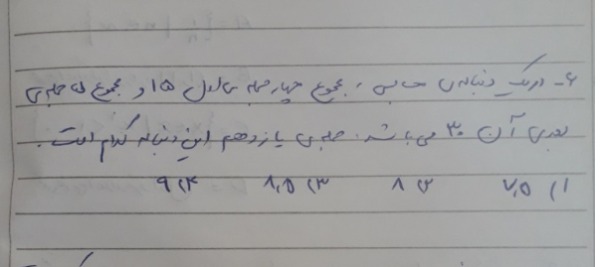 ۶- در یک دنباله‌ی حسابی، مجموع چهار جمله‌ی اول ۱۵ و مجموع ۵ جمله‌ی
بعدی آن ۳۰ می‌باشد. جمله‌ی یازدهم این دنباله کدام است.
۱) ۷,۵ ۲) ۸ ۳) ۸,۵ ۴) ۹